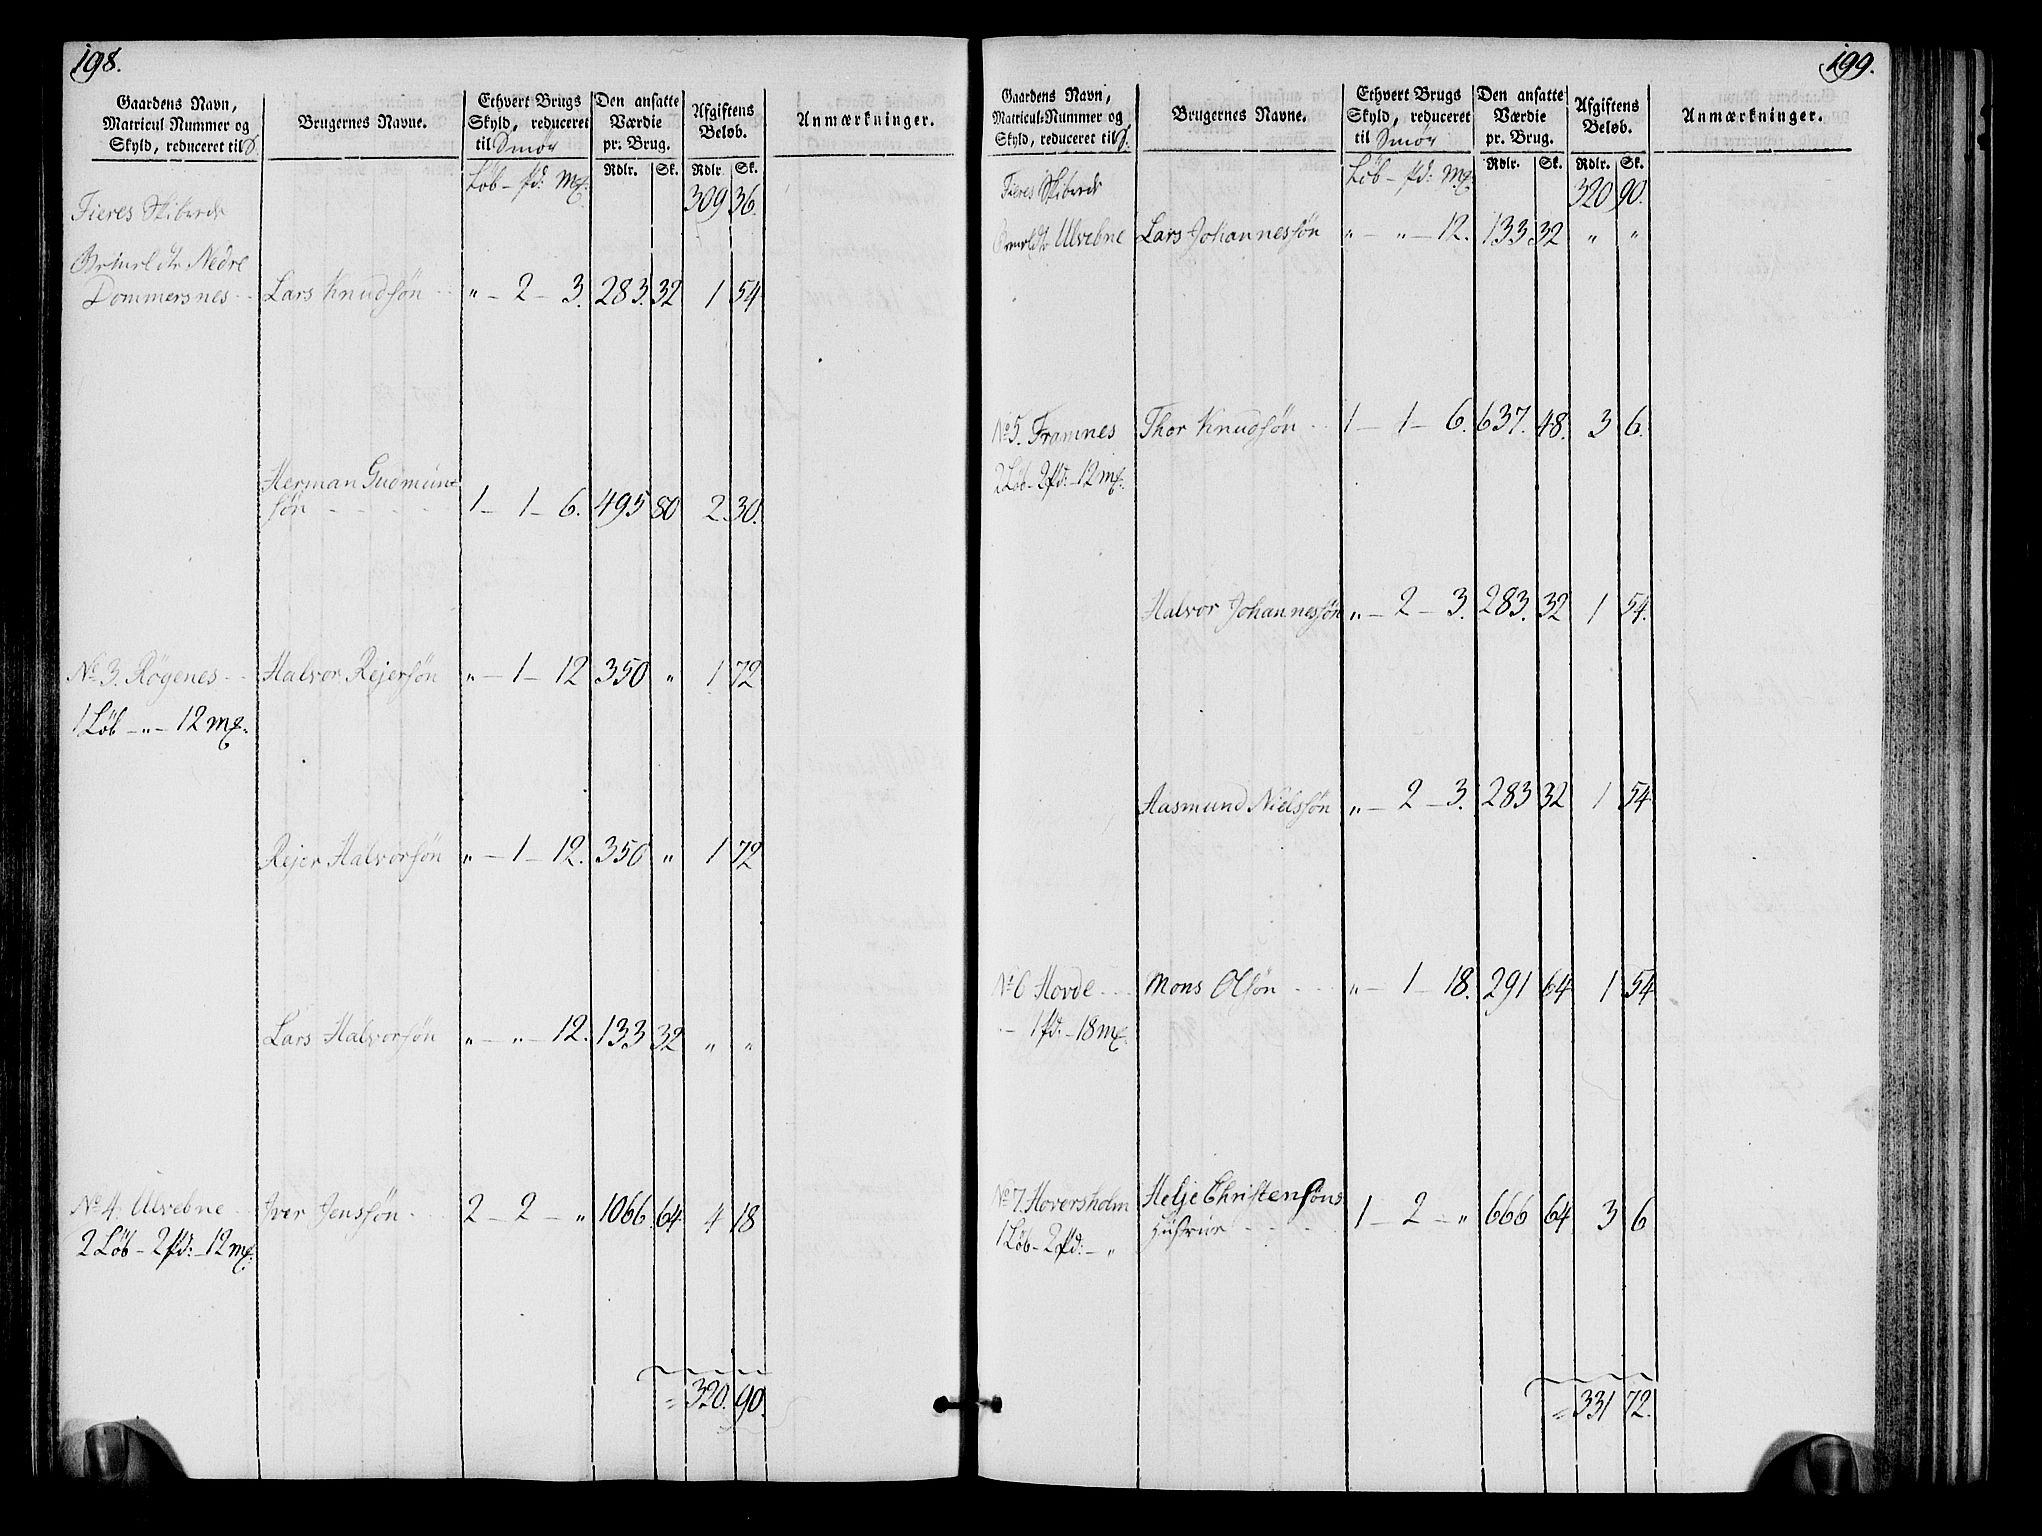 198.
Gaardens Navn, Matricul Nummer og Skyld, reduceret til
Brugernes Navne.
Ethvert Brugs Skyld, reduceret til Smör
Den ansatte Værdie pr. Brug.
Afgiftens Beløb.
Anmærkninger.
Löb – pd: mk:
Rdlr. Sk. Rdlr. Sk.
Fieres Skibrede 309 36.
Nedre
Dommersnes Lars Knudsön " – 2 – 3. 283. 32 1 54
Herman Gudmund-
sön 1 – 1 – 6. 495 80 2. 30.
No. 3. Rögenes Halvor Rejersön " – 1 – 12 350 " 1 72
1 Löb – " – 12 mk.
Rejer Halvorsön " – 1 – 12. 350 " 1 72
Lars Halvorsön " – " – 12. 133 32 " "
No. 4. Ulvebne Iver Jenssön 2 – 2 – " 1066 64 4 18
2 Löb – 2 pd: – 12 mk:
= 320. 90.
199.
Gaardens Navn, Matricul-Nummer og Skyld, reduceret til
Brugernes Navne.
Ethvert Brugs Skyld, reduceret til Smör
Den ansatte Værdie pr. Brug.
Afgiftens Beløb.
Anmærkninger.
Löb – pd: mk:
Rdlr. Sk. Rdlr. Sk.
Fieres Skibrede 320 90.
Ulvebne Lars Johannessön " – " – 12. 133 32 " "
No. 5. Framnes Thor Knudsön 1 – 1 – 6. 637. 48. 3 6.
2 Löb – 2 pd: – 12 mk.
Halvor Johannessön " – 2 – 3. 283. 32 1 54.
Aasmund Nielssön " – 2 – 3. 283 32 1 54
No. 6 Hovde Mons Olsön " – 1 – 18. 291 64 1 54
" – 1 pd. – 18 mk.
No. 7. Hoversholm Helje Christensöns
1 Löb – 2 pd: – " Hustrue 1 – 2 – " 666 64 3 6
= 331 72.